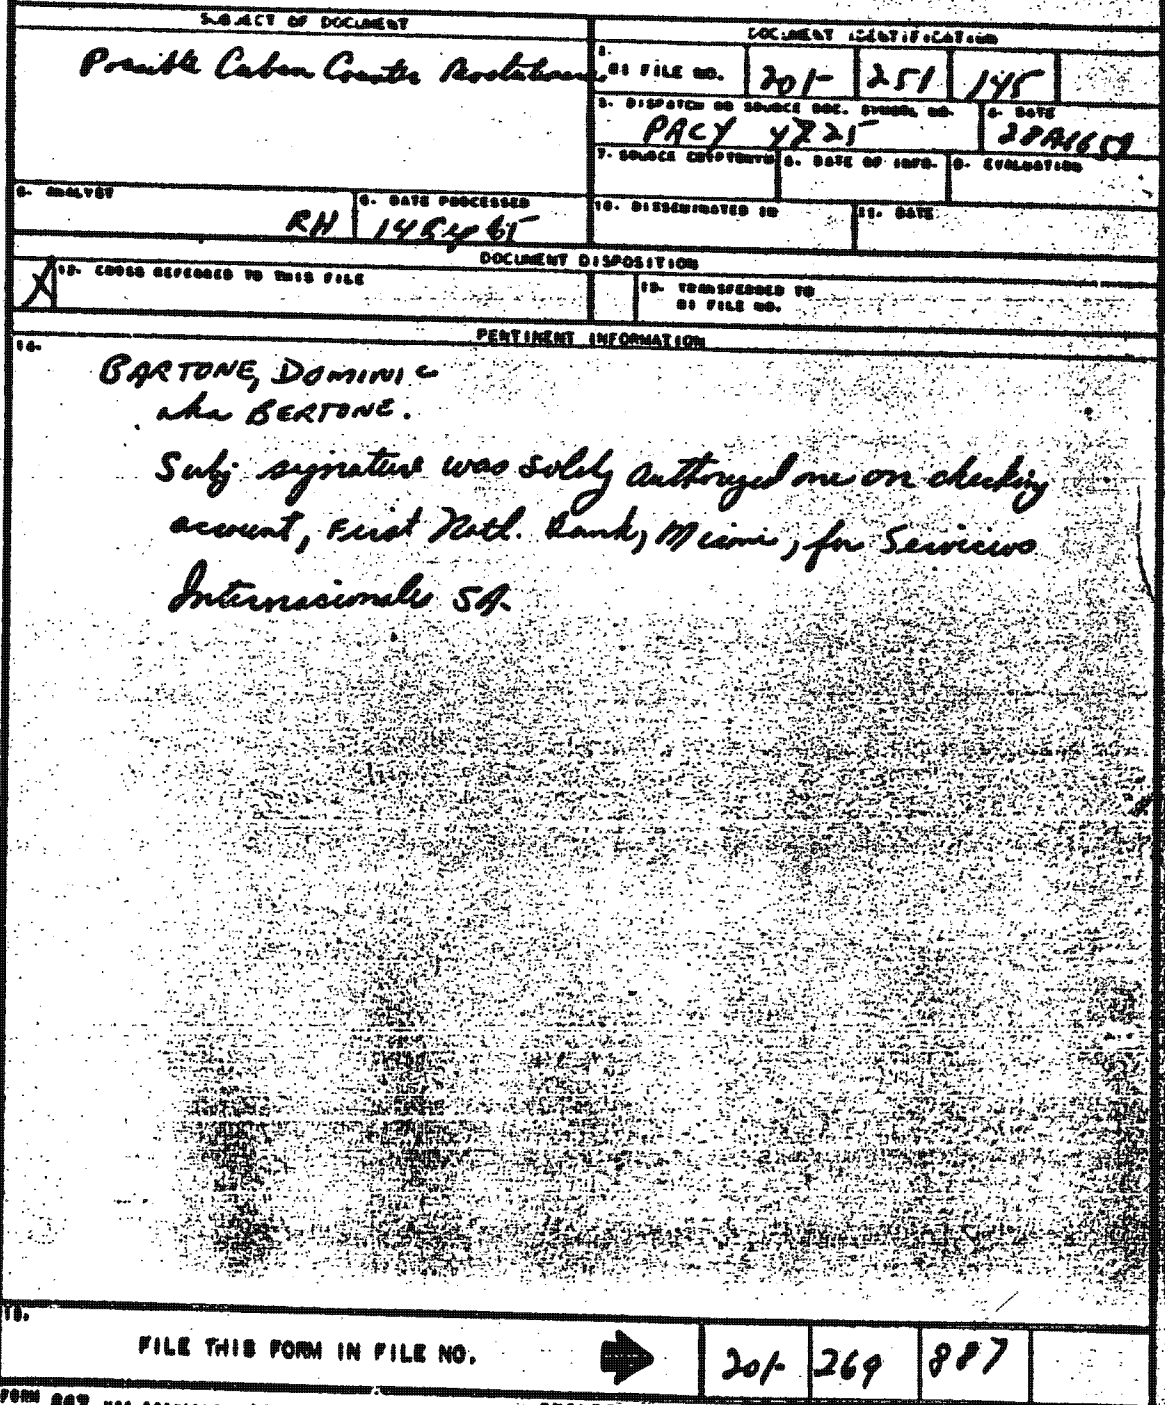 SUBJECT OF DOCUMENT
DOCUMENT IDENTIFICATION
Possible Cuban Counter
2. RI FILE NO. 201- 251 145
3. DISPATCH OR SOURCE DOC. SYMBOL NO.
4. DATE
PACY
7. SOURCE CRYPTONYM 8. DATE OF INFO. 9. EVALUATION
5. ANALYST
6. DATE PROCESSED
10. DISSEMINATED IN
11. DATE
RH
DOCUMENT DISPOSITION
X
12. CROSS REFERRED TO THIS FILE
13. TRANSFERRED TO
RI FILE NO.
PERTINENT INFORMATION
14.
BARTONE, DOMINIC
aka BERTONE.
Subj signature was solely authorized one on checking
account, First Natl. Bank, Miami, for Servicios
Internacionales SA.
15.
FILE THIS FORM IN FILE NO.
201- 269 887
FORM